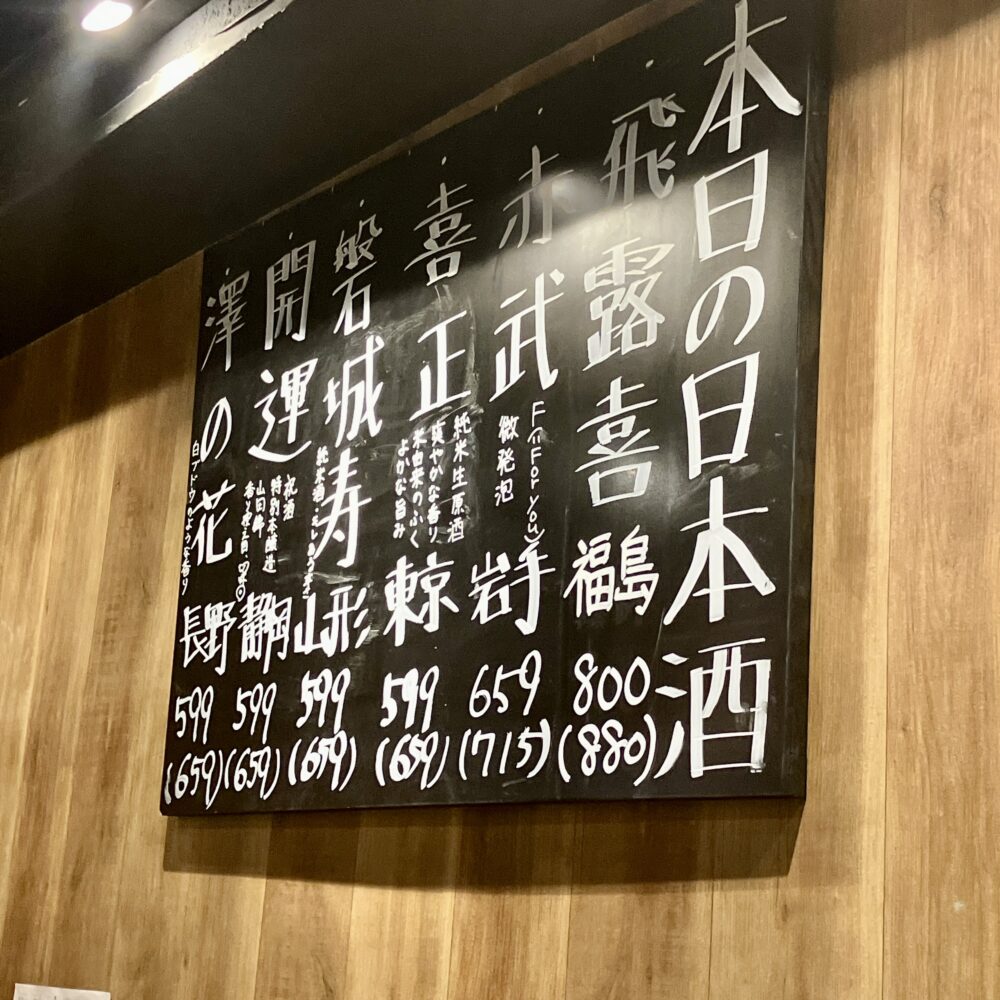 本日の日本酒
飛露喜 福島 800 (880)
赤武 F (For you) 岩手 659 (715)
微発泡
喜正 東京 599 (659)
純米生原酒
爽やかな香り、
米由来のふく
よかな旨み
磐城寿 山形 599 (659)
純米酒
開運 静岡 599 (659)
祝酒
特別本醸造
山田錦
澤の花 長野 599 (659)
白ブドウのような香り